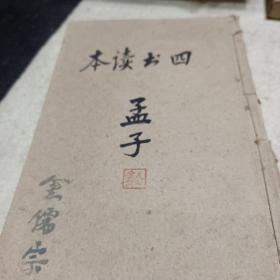 四书读本
孟子
金儒宗